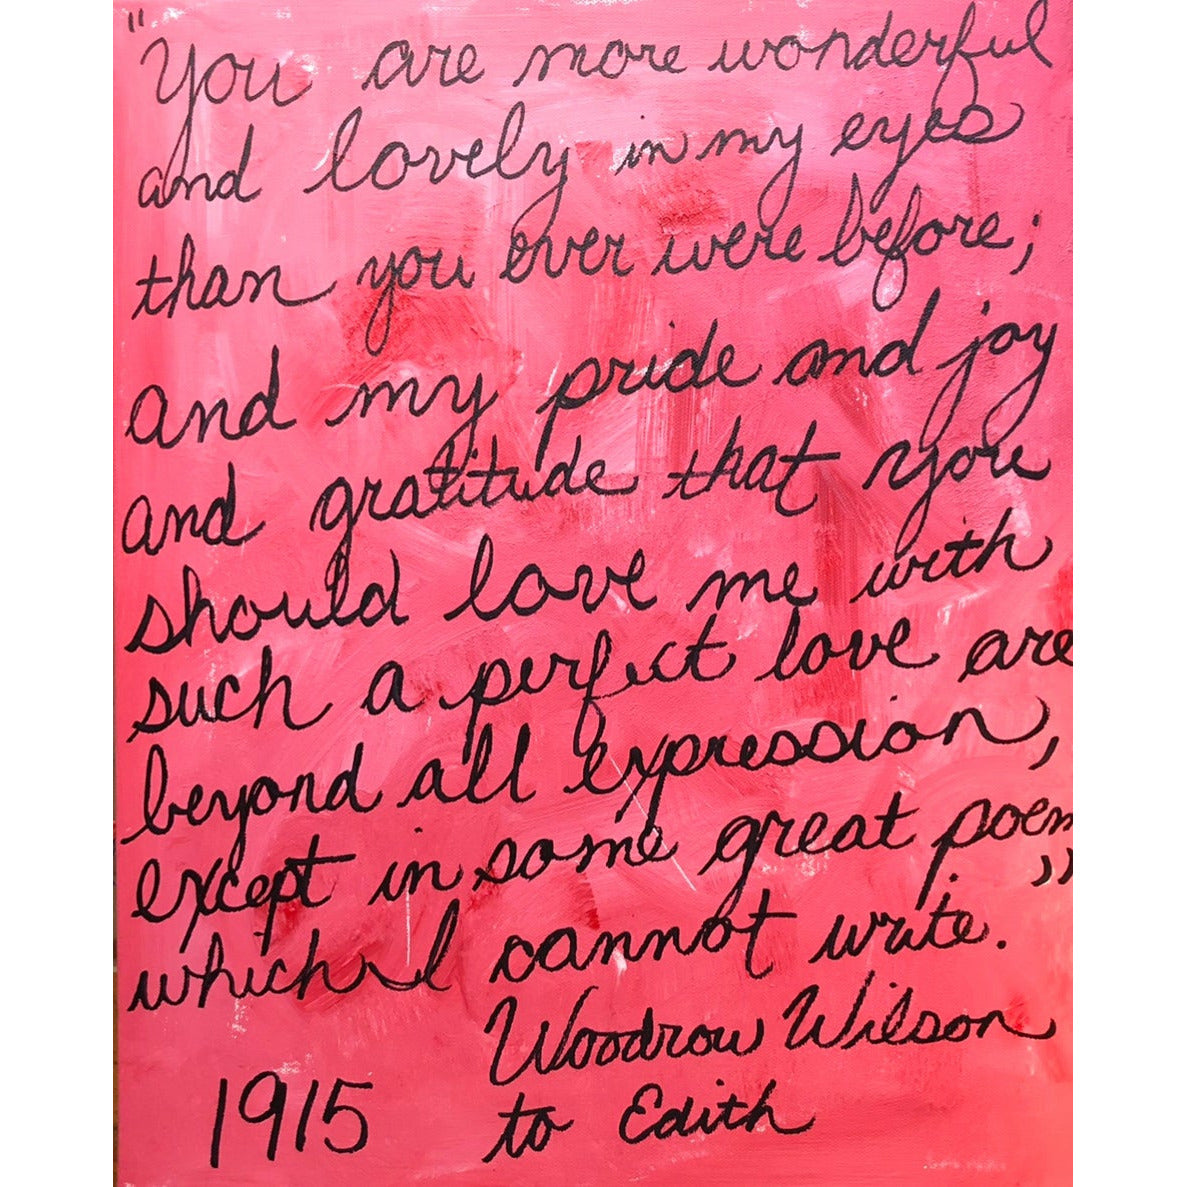 "You are more wonderful
and lovely in my eyes
than you ever were before;
and my pride and joy
and gratitude that you
should love me with
such a perfect love are
beyond all expression,
except in some great poem
which I cannot write."
Woodrow Wilson
1915 to Edith